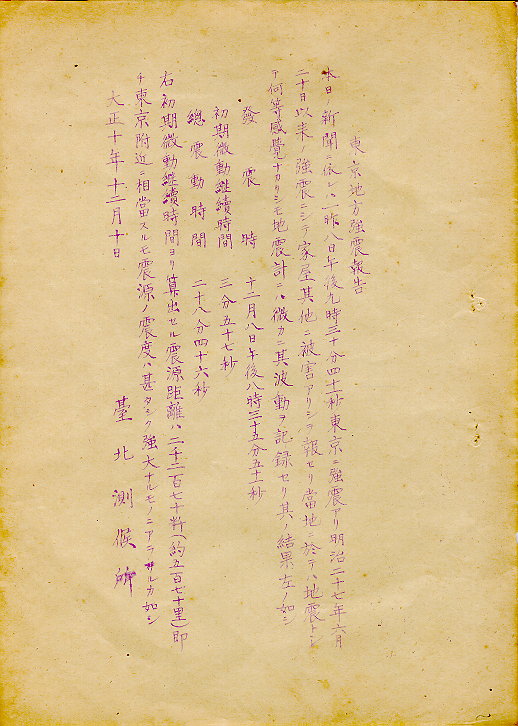 東京地方強震報告
本日ノ新聞ニ依レハ一昨八日午後九時三十分四十秒東京ニ強震アリ明治二十七年六月
二十日以来ノ強震ニシテ家屋其他ニ被害アリシヲ報セリ當地ニ於テハ地震トシ
テ何等感覺ナカリシモ地震計ニハ微カニ其波動ヲ記録セリ其ノ結果左ノ如シ
發震時 十二月八日午後八時三十五分五十秒
初期微動継續時間 三分五十七秒
總震動時間 二十八分四十六秒
右初期微動継續時間ヨリ算出セル震源距離ハ二千二百七十粁(約五百七十里)即
チ東京附近ニ相當スルモ震源ノ震度ハ甚タシク強大ナルモノニアラサルカ如シ
大正十年十二月十日
臺北測候所